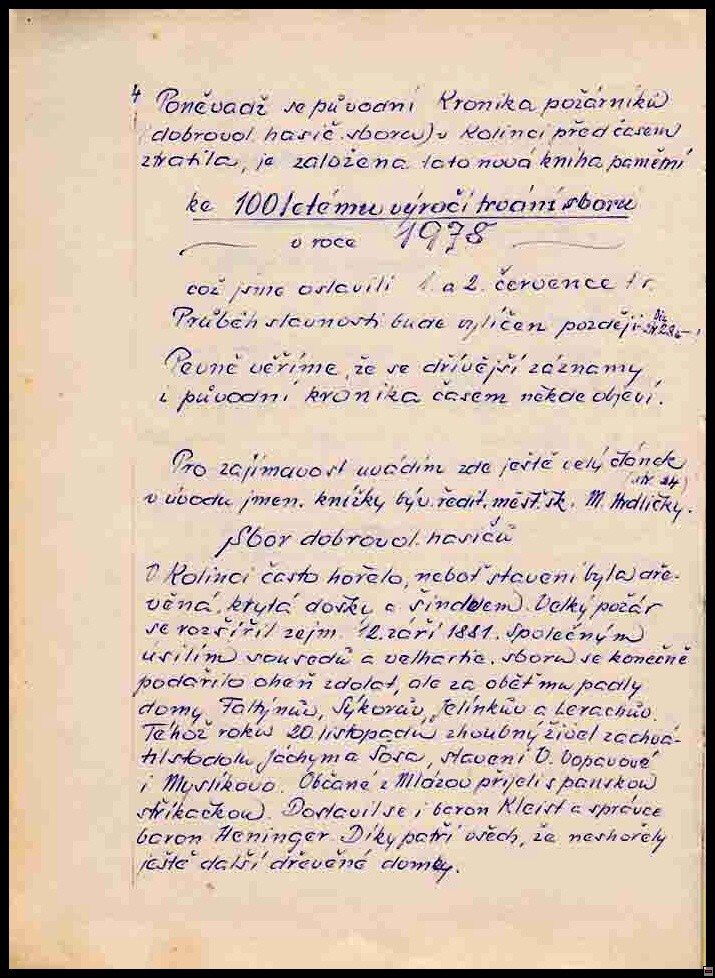 4
Poněvadž se původní Kronika požárníků
(dobrovol. hasič. sboru) v Kolinci před časem
ztratila, je založena tato nová kniha pamětní
ke 100letému výročí trvání sboru
v roce 1978
což jsme oslavili 1. a 2. července t. r.
Průběh slavnosti bude vylíčen později.
Pevně věříme, že se dřívější záznamy
i původní kronika časem někde objeví.
Pro zajímavost uvádím zde ještě celý článek
(str. 24)
v úvodu jmen. knížky býv. ředit. měšť. šk. M. Hrdličky.
Sbor dobrovol. hasičů
V Kolinci často hořelo, neboť stavení byla dře-
věná, krytá došky a šindelem. Velký požár
se rozšířil zejm. 12. září 1881. Společným
úsilím sousedů a velhartic. sboru se konečně
podařilo oheň zdolat, ale za oběť mu padly
domy Faltýnův, Sýkorův, Jelínkův a Lerachův.
Téhož roku 20. listopadu zhoubný živel zachvá-
til stodolu Jáchyma Sosa, stavení V. Vopavové
i Myslíkovo. Občané z Mlázov přijeli s panskou
stříkačkou. Dostavil se i baron Kleist a správce
baron Heninger. Díky patří všech, že neshořely
ještě další dřevěné domky.